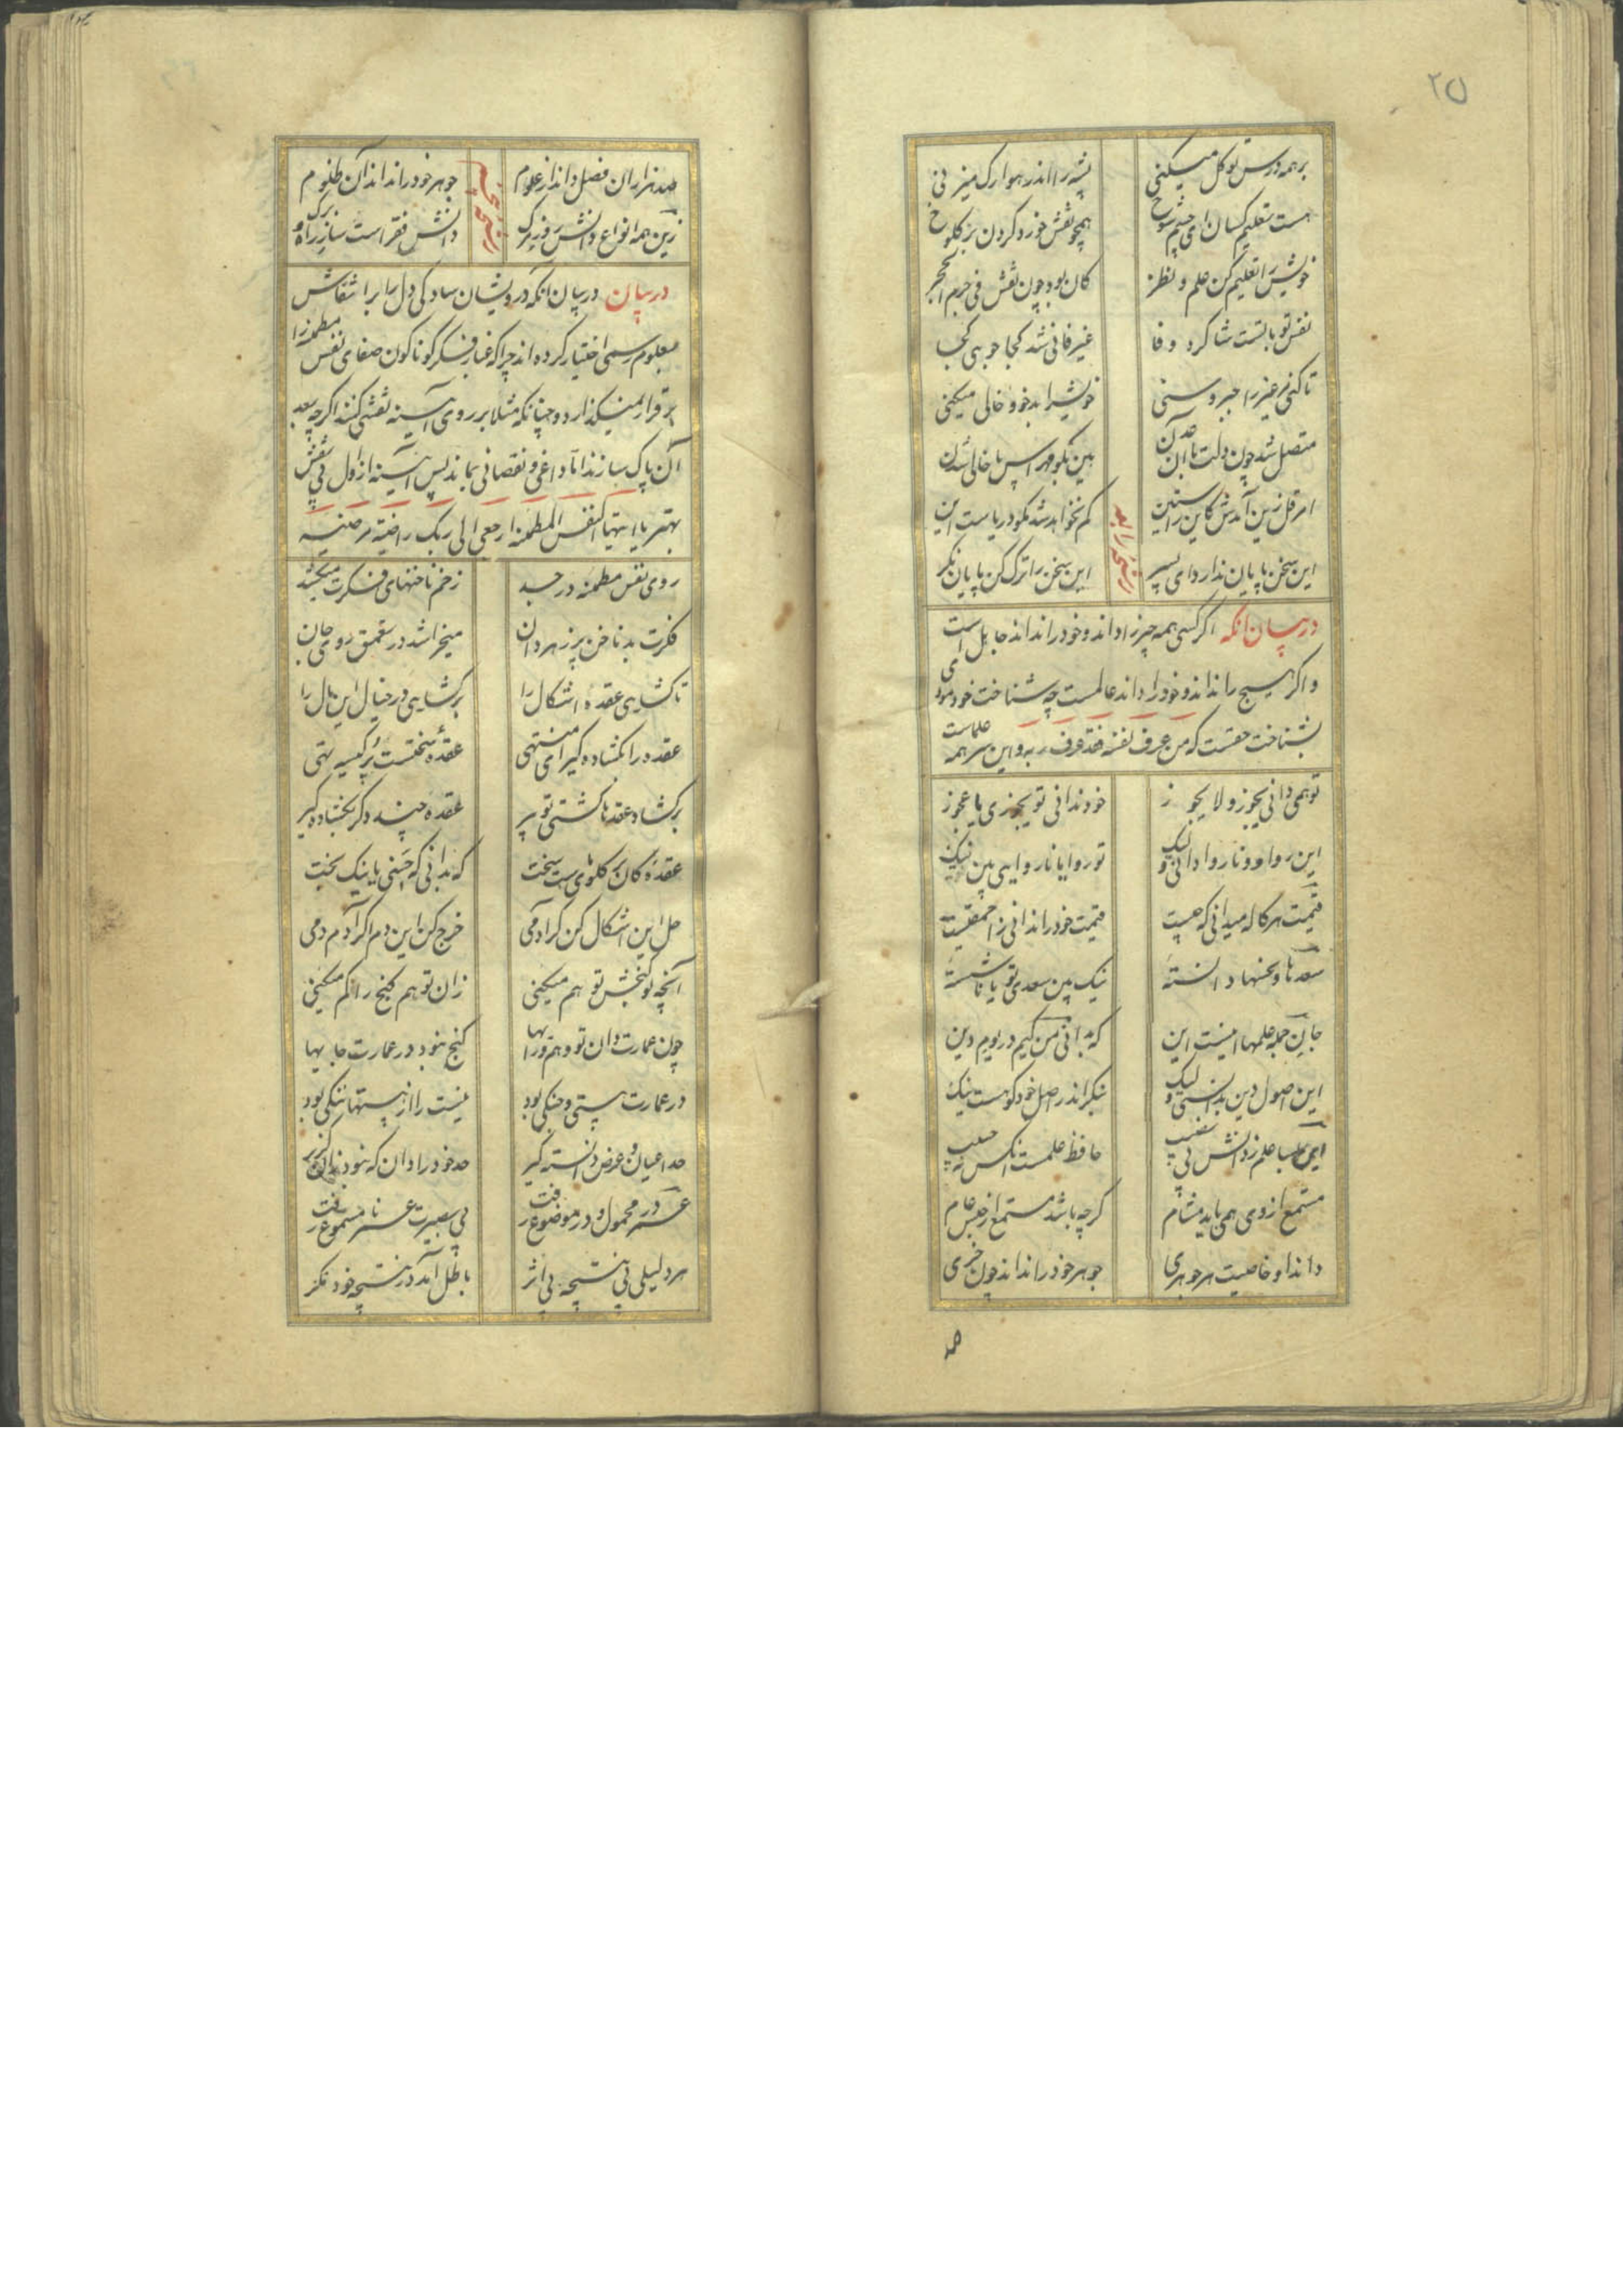 ۲۵
بر همه درس توکل میکنی پشه را اندر هوا رک میزنی
هست تعلیم کسان ای چشم شوخ همچو نقش خورد کردن بر کلوخ
خویش را تعلیم کن علم و نظر کان بود چون نقش فی جرم الحجر
نفس تو با تست شاکرد وفا غیر فانی شد کجا جویی کجا
تا کنی غیر را حبر و سنی خویش را بدخو و خالی میکنی
متصل شد چون دلت با آن عدن هین بگو مهراس با خالی شدن
امر قل زین آمدش کاین راستین کم نخواهد شد بکو دریاست این
این سخن پایان ندارد ای پسر این سخن را ترک کن پایان نکر
در بیان انکه اکر کسی همه چیز را داند و خود را نداند جاهل است
و اکر هیچ را نداند و خود را داند عالمست چه شناخت خود مودی
بشناخت حقست که من عرف نفسه فقد عرف ربه و این سر همه علماست
تو همی دانی یجوز و لا یجوز خود ندانی تو یجوزی یا عجوز
این روا و ونا روا دانی و لیک تو روا یا ناروایی بین نیک
قیمت هر کاله میدانی که چیست قیمت خود را ندانی ز احمقیست
سعدها و نحسها دانسته نیک بین سعدی تو یا ناشسته
جان جمله علمها اینست این که بدانی من کیم در یوم دین
این اصول دین بدانستی و لیک بنکر اندر اصل خود کو هست نیک
ای بسا علم ز دانش بی نصیب حافظ علمست انکس نه حبیب
مستمع از وی همی یابد مشام کرچه باشد مستمع از جنس عام
داند او خاصیت هر جوهری جوهر خود را نداند چون خری
صد هزاران فضل داند از علوم جوهر خود را نداند آن ظلوم
زین همه انواع دانش روز مرک دانش فقر است ساز راه و برک
در بیان در بیان انکه درویشان سادکی دل را بر انتقاش
معلوم رسمی اختیار کرده اند چرا که غبار فکر کوناکون صفای نفس مطمئنه را
بر قرار نمیکذارد و چنانکه مثلا بر روی آیینه نقشی کنند اکرچه بعد
آن پاک سازند اما داغی و نقصانی بماند پس آیینه از اول بی نقش
بهتر یا ایتها النفس المطمئنة ارجعی الی ربک راضیة مرضیة
روی نفس مطمئنه در جسد زخم ناخنهای فکرت میکشد
فکرت بد ناخن پر زهر دان میخراشد در تعمق روی جان
تا کشایی عقده اشکال را برکشایی در خیال این بال را
عقده را بکشاده کیر ای منتهی عقده سختست بر کیسه تهی
بر کشاد عقدها کشتی تو پیر عقده چند دکر بکشاده کیر
عقده کان بر کلوی ماست سخت که بدانی که خسی یا نیک بخت
حل این اشکال کن کر آدمی خرج کن این دم اکر آدم دمی
آنچه تو کنجش توهم میکنی زان توهم کنج را کم میکنی
چون عمارت دان تو وهم و رایها کنج نبود در عمارت جایها
در عمارت هستی و جنکی بود نیست را از هستها ننکی بود
حد اعیان و عرض دانسته کیر حد خود را دان که نبود زان کزیر
عمر در محمول و در موضوع رفت بی بصیرت عمر نامسموع رفت
هر دلیلی بی نتیجه بی اثر باطل آمد در نتیجه خود نکر